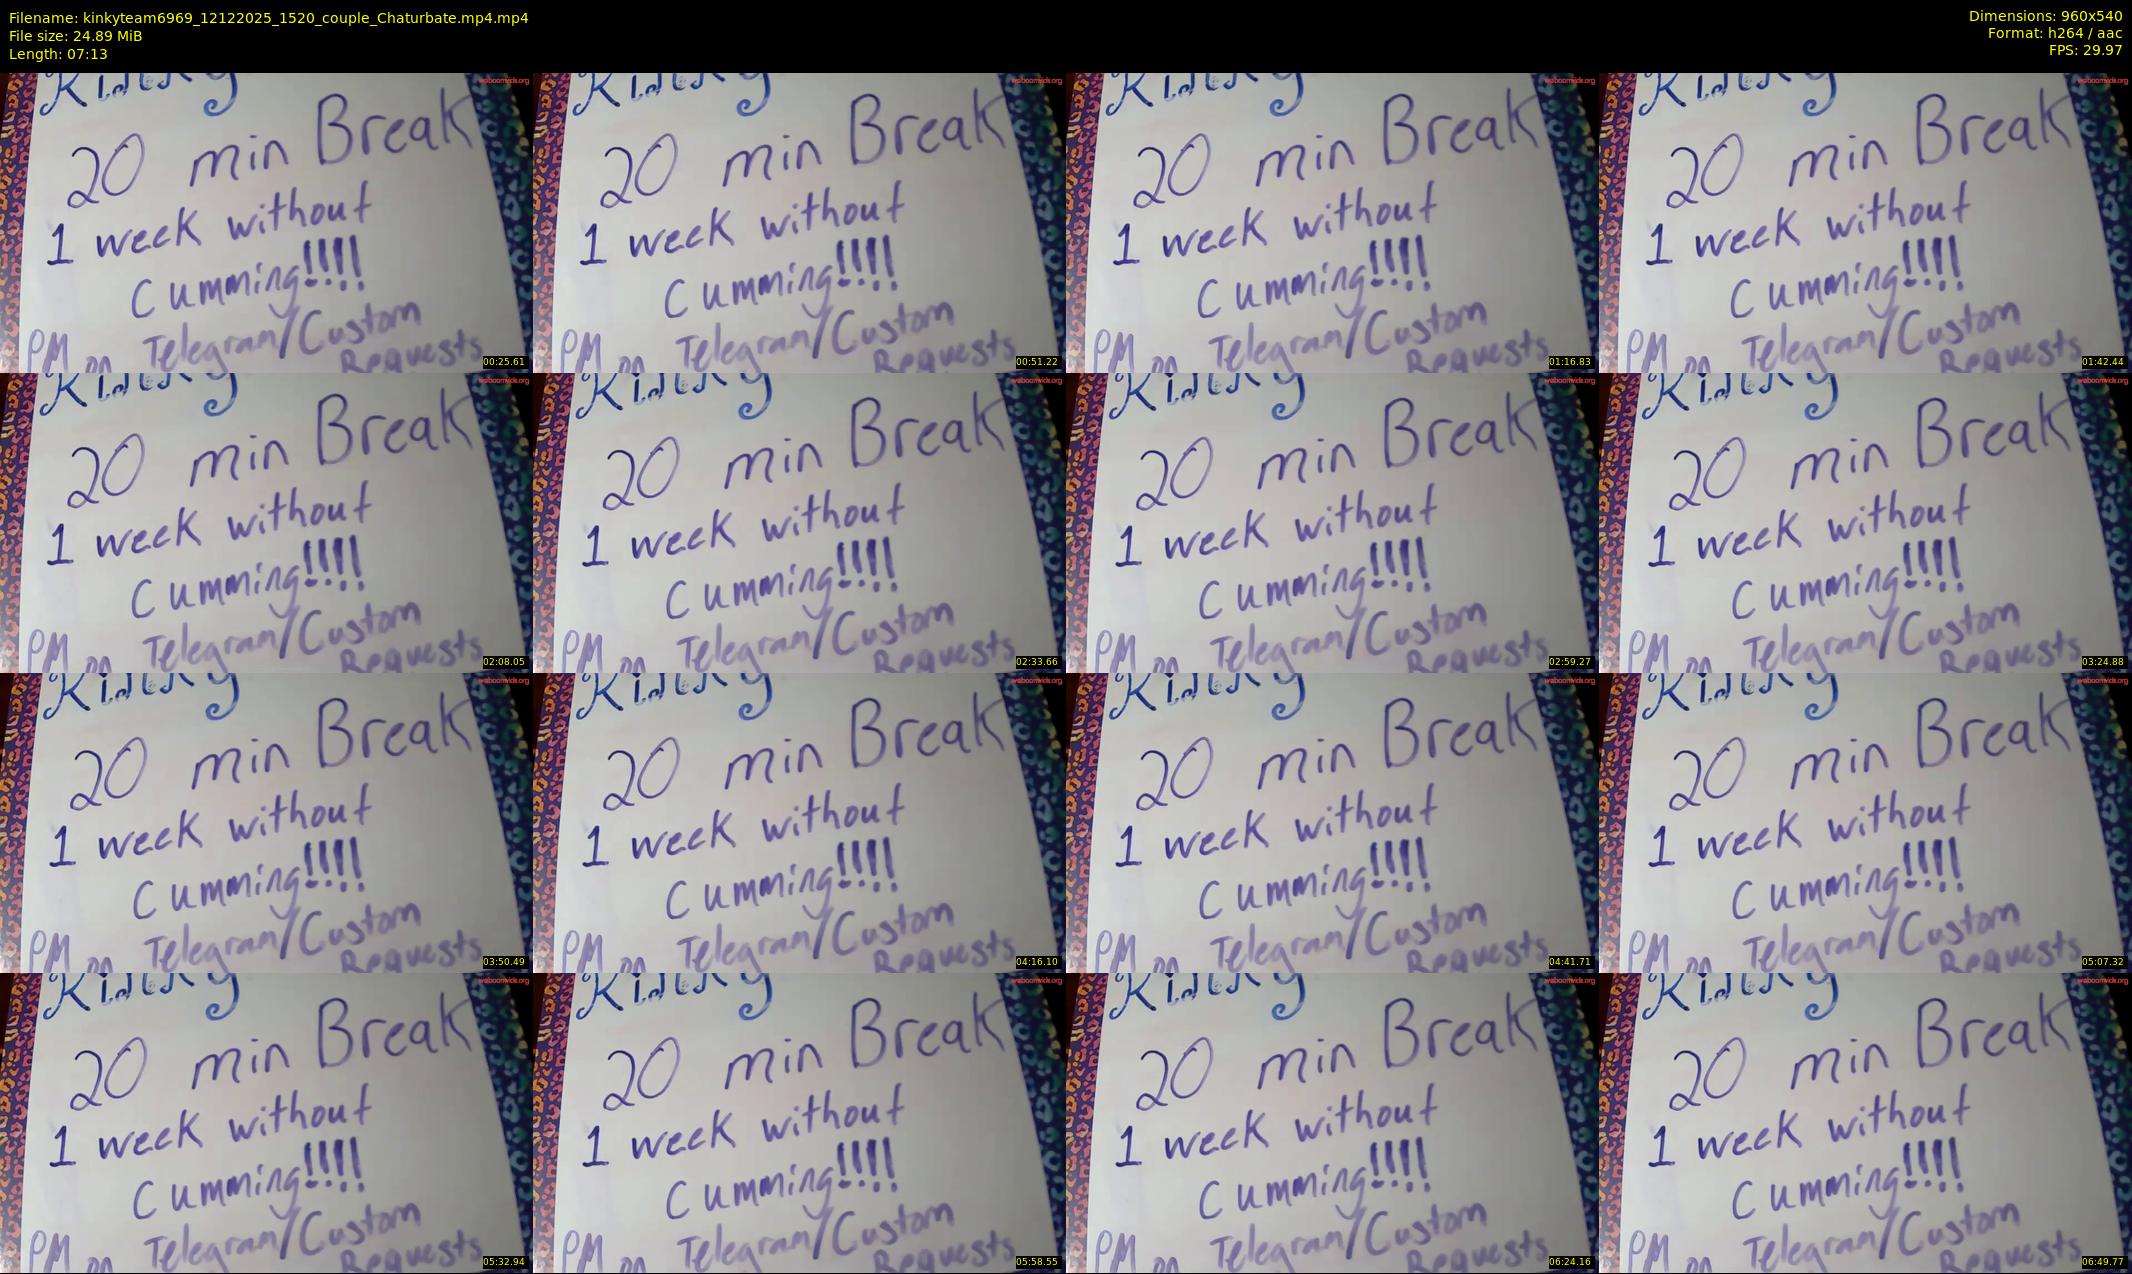 Filename: kinkyteam6969_12122025_1520_couple_Chaturbate.mp4.mp4
File size: 24.89 MiB
Length: 07:13
Dimensions: 960x540
Format: h264 / aac
FPS: 29.97
Kinky
20 min Break
1 week without
Cumming!!!!
PM on Telegram/Custom
Requests
00:25.61
Kinky
20 min Break
1 week without
Cumming!!!!
PM on Telegram/Custom
Requests
00:51.22
Kinky
20 min Break
1 week without
Cumming!!!!
PM on Telegram/Custom
Requests
01:16.83
Kinky
20 min Break
1 week without
Cumming!!!!
PM on Telegram/Custom
Requests
01:42.44
Kinky
20 min Break
1 week without
Cumming!!!!
PM on Telegram/Custom
Requests
02:08.05
Kinky
20 min Break
1 week without
Cumming!!!!
PM on Telegram/Custom
Requests
02:33.66
Kinky
20 min Break
1 week without
Cumming!!!!
PM on Telegram/Custom
Requests
02:59.27
Kinky
20 min Break
1 week without
Cumming!!!!
PM on Telegram/Custom
Requests
03:24.88
Kinky
20 min Break
1 week without
Cumming!!!!
PM on Telegram/Custom
Requests
03:50.49
Kinky
20 min Break
1 week without
Cumming!!!!
PM on Telegram/Custom
Requests
04:16.10
Kinky
20 min Break
1 week without
Cumming!!!!
PM on Telegram/Custom
Requests
04:41.71
Kinky
20 min Break
1 week without
Cumming!!!!
PM on Telegram/Custom
Requests
05:07.32
Kinky
20 min Break
1 week without
Cumming!!!!
PM on Telegram/Custom
Requests
05:32.94
Kinky
20 min Break
1 week without
Cumming!!!!
PM on Telegram/Custom
Requests
05:58.55
Kinky
20 min Break
1 week without
Cumming!!!!
PM on Telegram/Custom
Requests
06:24.16
Kinky
20 min Break
1 week without
Cumming!!!!
PM on Telegram/Custom
Requests
06:49.77